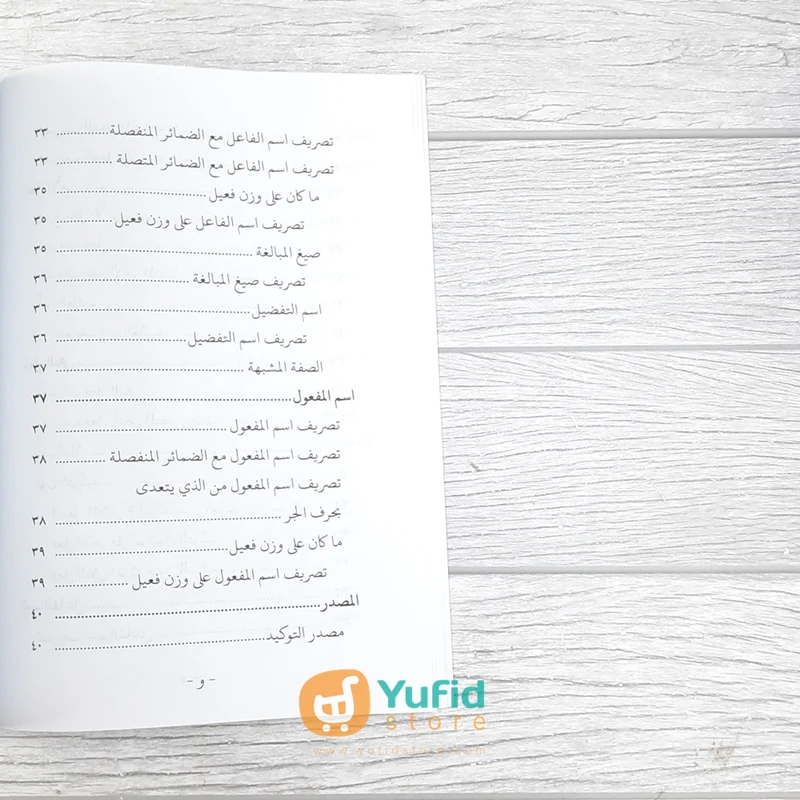 تصريف اسم الفاعل مع الضمائر المنفصلة .............. ٣٣
تصريف اسم الفاعل مع الضمائر المتصلة .............. ٣٣
ما كان على وزن فعيل .............. ٣٥
تصريف اسم الفاعل على وزن فعيل .............. ٣٥
صيغ المبالغة .............. ٣٥
تصريف صيغ المبالغة .............. ٣٦
اسم التفضيل .............. ٣٦
تصريف اسم التفضيل .............. ٣٦
الصفة المشبهة .............. ٣٧
اسم المفعول .............. ٣٧
تصريف اسم المفعول .............. ٣٧
تصريف اسم المفعول مع الضمائر المنفصلة .............. ٣٨
تصريف اسم المفعول من الذي يتعدى
بحرف الجر .............. ٣٨
ما كان على وزن فعيل .............. ٣٩
تصريف اسم المفعول على وزن فعيل .............. ٣٩
المصدر .............. ٤٠
مصدر التوكيد .............. ٤٠
- و -
Yufid
store
www.yufidstore.com